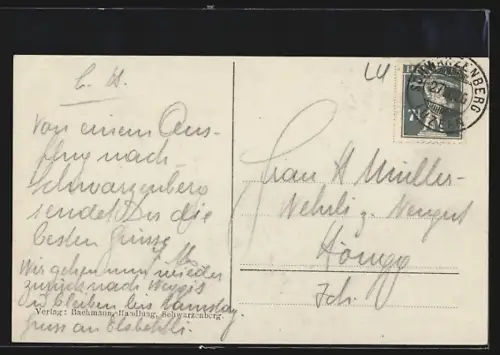 L. H.
Von einem Aus-
flug nach
Schwarzenberg
sendet Dir die
besten Grüsse
Wir gehen nun wieder
zurück nach Weggis
u. bleiben bis Samstag.
Gruss an Elsbethli.
Verlag: Bachmann, Handlung, Schwarzenberg.
SCHWARZENBERG
27
7
Frau H Müller-
Wehrli z. Weingut
Höngg
Zch.